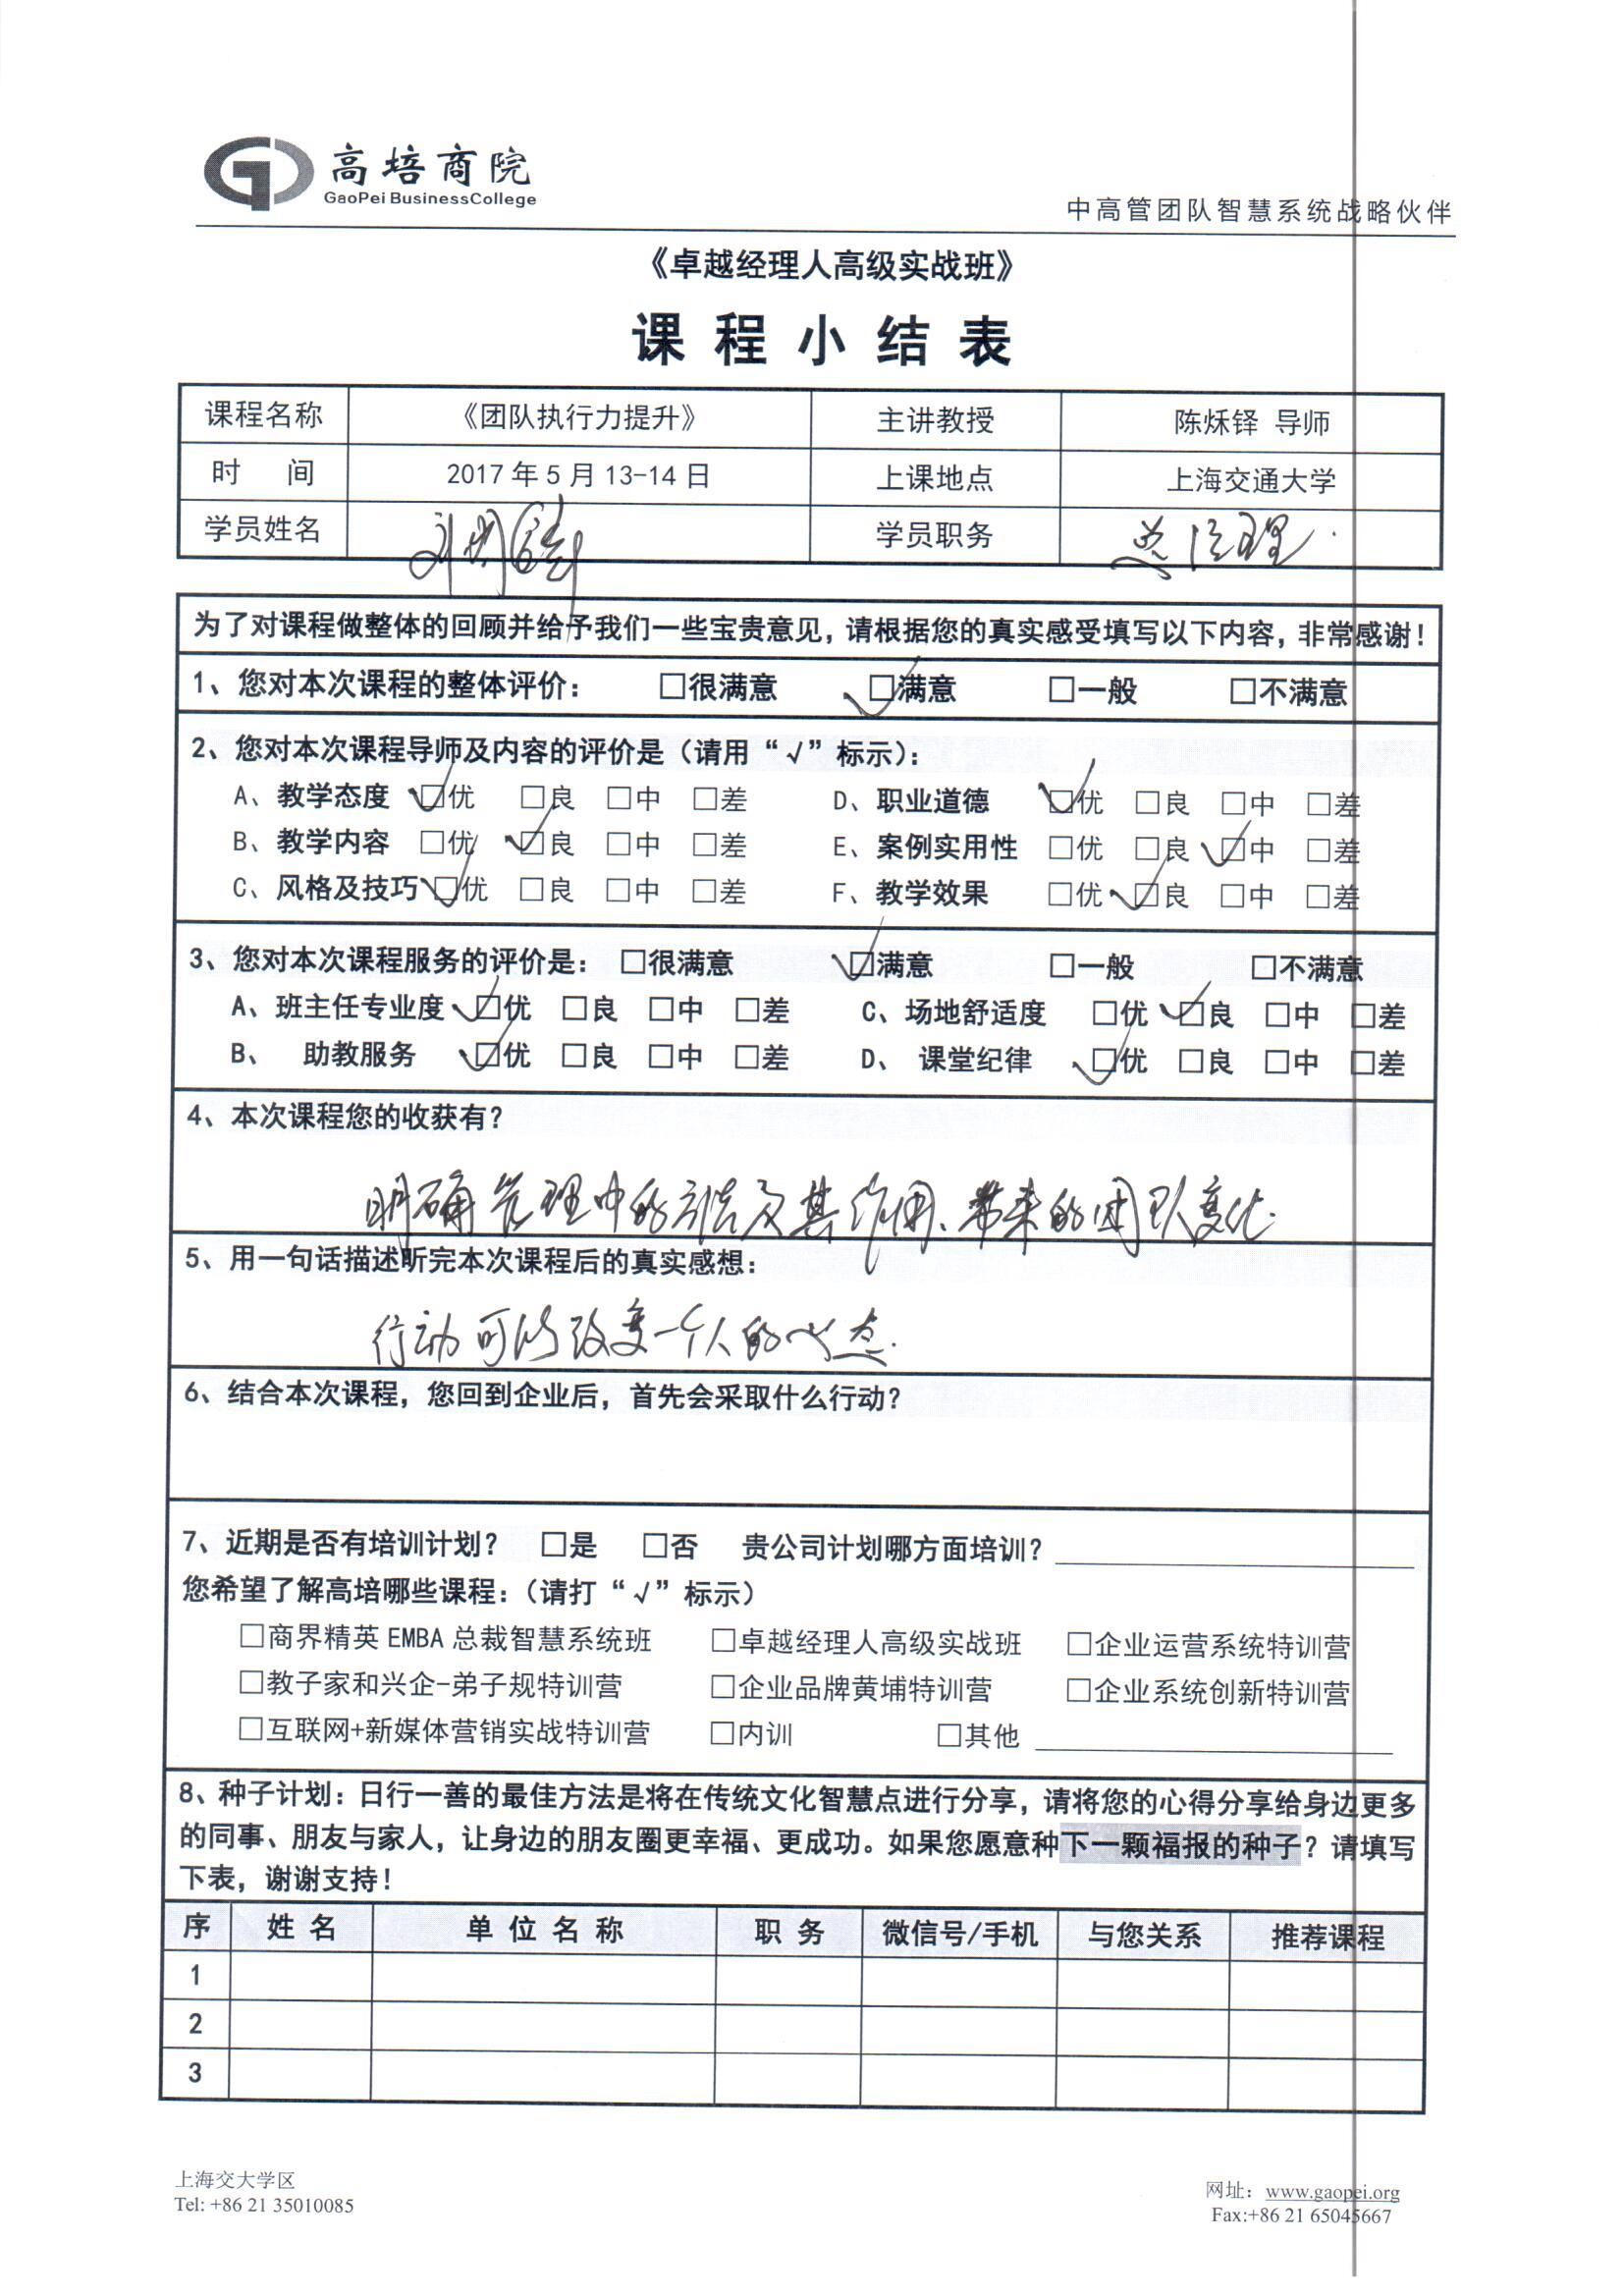 高培商院
GaoPei BusinessCollege
中高管团队智慧系统战略伙伴
《卓越经理人高级实战班》
课程小结表
课程名称 《团队执行力提升》 主讲教授 陈烁铎 导师
时 间 2017年5月13-14日 上课地点 上海交通大学
学员姓名 学员职务 总经理
为了对课程做整体的回顾并给予我们一些宝贵意见，请根据您的真实感受填写以下内容，非常感谢！
1、您对本次课程的整体评价： □很满意 ☑满意 □一般 □不满意
2、您对本次课程导师及内容的评价是（请用“√”标示）：
A、教学态度 ☑优 □良 □中 □差 D、职业道德 ☑优 □良 □中 □差
B、教学内容 □优 ☑良 □中 □差 E、案例实用性 □优 □良 ☑中 □差
C、风格及技巧 ☑优 □良 □中 □差 F、教学效果 □优 ☑良 □中 □差
3、您对本次课程服务的评价是：□很满意 ☑满意 □一般 □不满意
A、班主任专业度 ☑优 □良 □中 □差 C、场地舒适度 □优 ☑良 □中 □差
B、 助教服务 ☑优 □良 □中 □差 D、 课堂纪律 ☑优 □良 □中 □差
4、本次课程您的收获有？
明确管理中的方法及其作用、带来的团队变化.
5、用一句话描述听完本次课程后的真实感想：
行动可以改变一个人的心态.
6、结合本次课程，您回到企业后，首先会采取什么行动？
7、近期是否有培训计划？ □是 □否 贵公司计划哪方面培训？
您希望了解高培哪些课程：（请打“√”标示）
□商界精英EMBA总裁智慧系统班 □卓越经理人高级实战班 □企业运营系统特训营
□教子家和兴企-弟子规特训营 □企业品牌黄埔特训营 □企业系统创新特训营
□互联网+新媒体营销实战特训营 □内训 □其他
8、种子计划：日行一善的最佳方法是将在传统文化智慧点进行分享，请将您的心得分享给身边更多
的同事、朋友与家人，让身边的朋友圈更幸福、更成功。如果您愿意种下一颗福报的种子？请填写
下表，谢谢支持！
序 姓名 单位名称 职务 微信号/手机 与您关系 推荐课程
1
2
3
上海交大学区
网址：www.gaopei.org
Tel: +86 21 35010085
Fax:+86 21 65045667